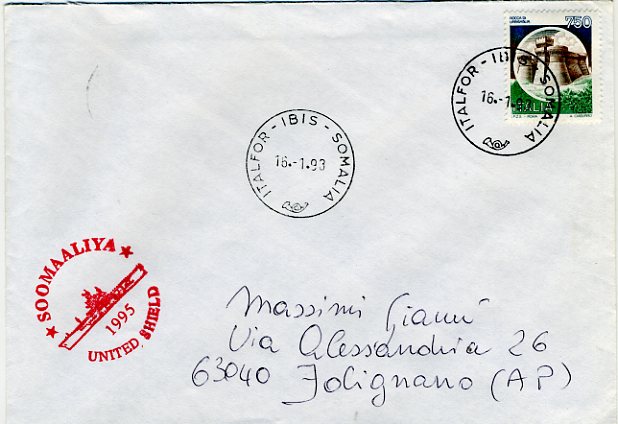 ROCCA DI
URBISAGLIA
750
ITALIA
I.P.Z.S. - ROMA
ITALFOR - IBIS - SOMALIA
16.-1.93
ITALFOR - IBIS - SOMALIA
16.-1.93
SOOMAALIYA
1995
UNITED SHIELD
Massimi Gianni
Via Alessandria 26
63040 Folignano (AP)